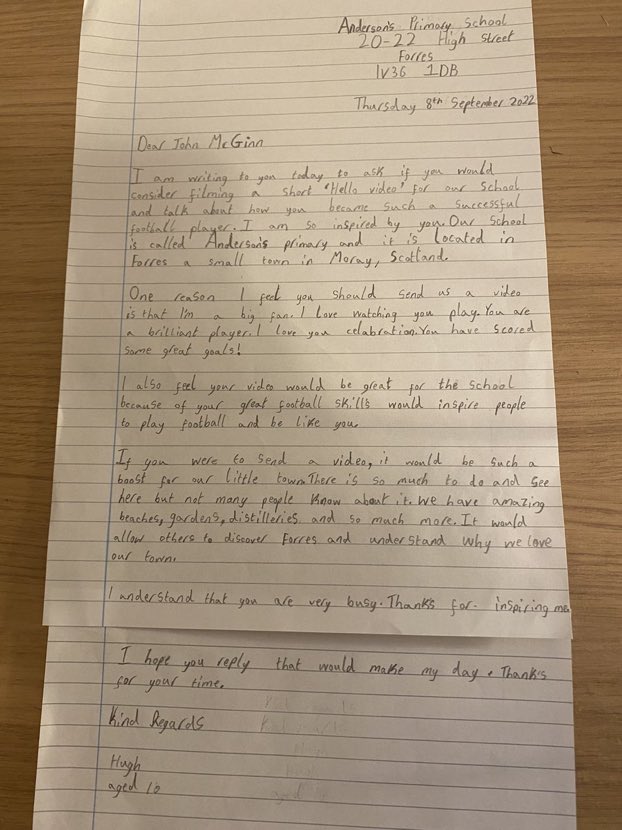 Anderson's Primary School
20-22 High Street
Forres
IV36 1DB
Thursday 8th September 2022
Dear John McGinn
I am writing to you today to ask if you would
consider filming a short 'Hello video' for our School
and talk about how you became such a successful
football player. I am so inspired by you. Our School
is called Anderson's primary and it is located in
Forres a small town in Moray, Scotland.
One reason I feel you should send us a video
is that I'm a big fan. I love watching you play. You are
a brilliant player. I love you celabration. You have scored
some great goals!
I also feel your video would be great for the school
because of your great football skills would inspire people
to play football and be like you.
If you were to send a video, it would be such a
boost for our little town. There is so much to do and see
here but not many people know about it. We have amazing
beaches, gardens, distilleries and so much more. It would
allow others to discover Forres and understand why we love
our town.
I understand that you are very busy. Thanks for inspiring me.
I hope you reply that would make my day. Thanks
for your time.
Kind Regards
Hugh
aged 10